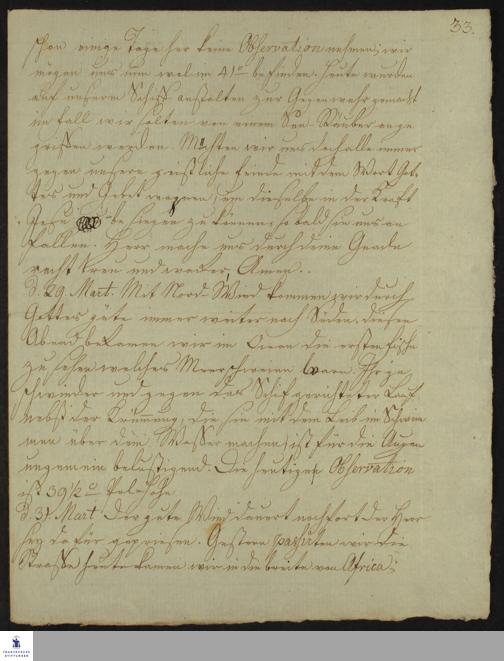 33.
schon einige Tage her keine Observation nehmen; wir
mögen uns nun wol im 41° befinden. Heute wurden
auf unserm Schiff anstalten zur Gegenwehr gemacht
im fall wir solten von einem See-Räuber ange-
griffen werden. Möchten wir uns desfalls immer
gegen unsere geistliche feinde mit dem Wort Got-
tes und Gebet wapnen, um dieselbe in der Kraft
Jesu besiegen zu können, so bald sie uns an-
fallen. Herr mache uns durch deine Gnade
recht treu und wacker, Amen.
d. 29. Mart. Mit Nord-Wind kommen wir durch
Gottes güte immer weiter nach Süden. diesen
Abend bekamen wir im Ocean die ersten fische
zu sehen welches Meerschweine waren. Ihr ge-
schwinder und gegen das Schif gerichteter Lauf
nebst der Krümmung, die sie mit dem Leib im Schwim-
men über dem Wasser machen, ist für die Augen
ungemein belustigend. Die heutige Observation
ist 39 1/2° Pole-Höhe
d. 31. Mart. Der gute Wind dauert noch fort der Herr
sey dafür gepriesen. Gestern passirten wir die
Strasse heute kamen wir in die breite von Africa;
FRANCKESCHE STIFTUNGEN